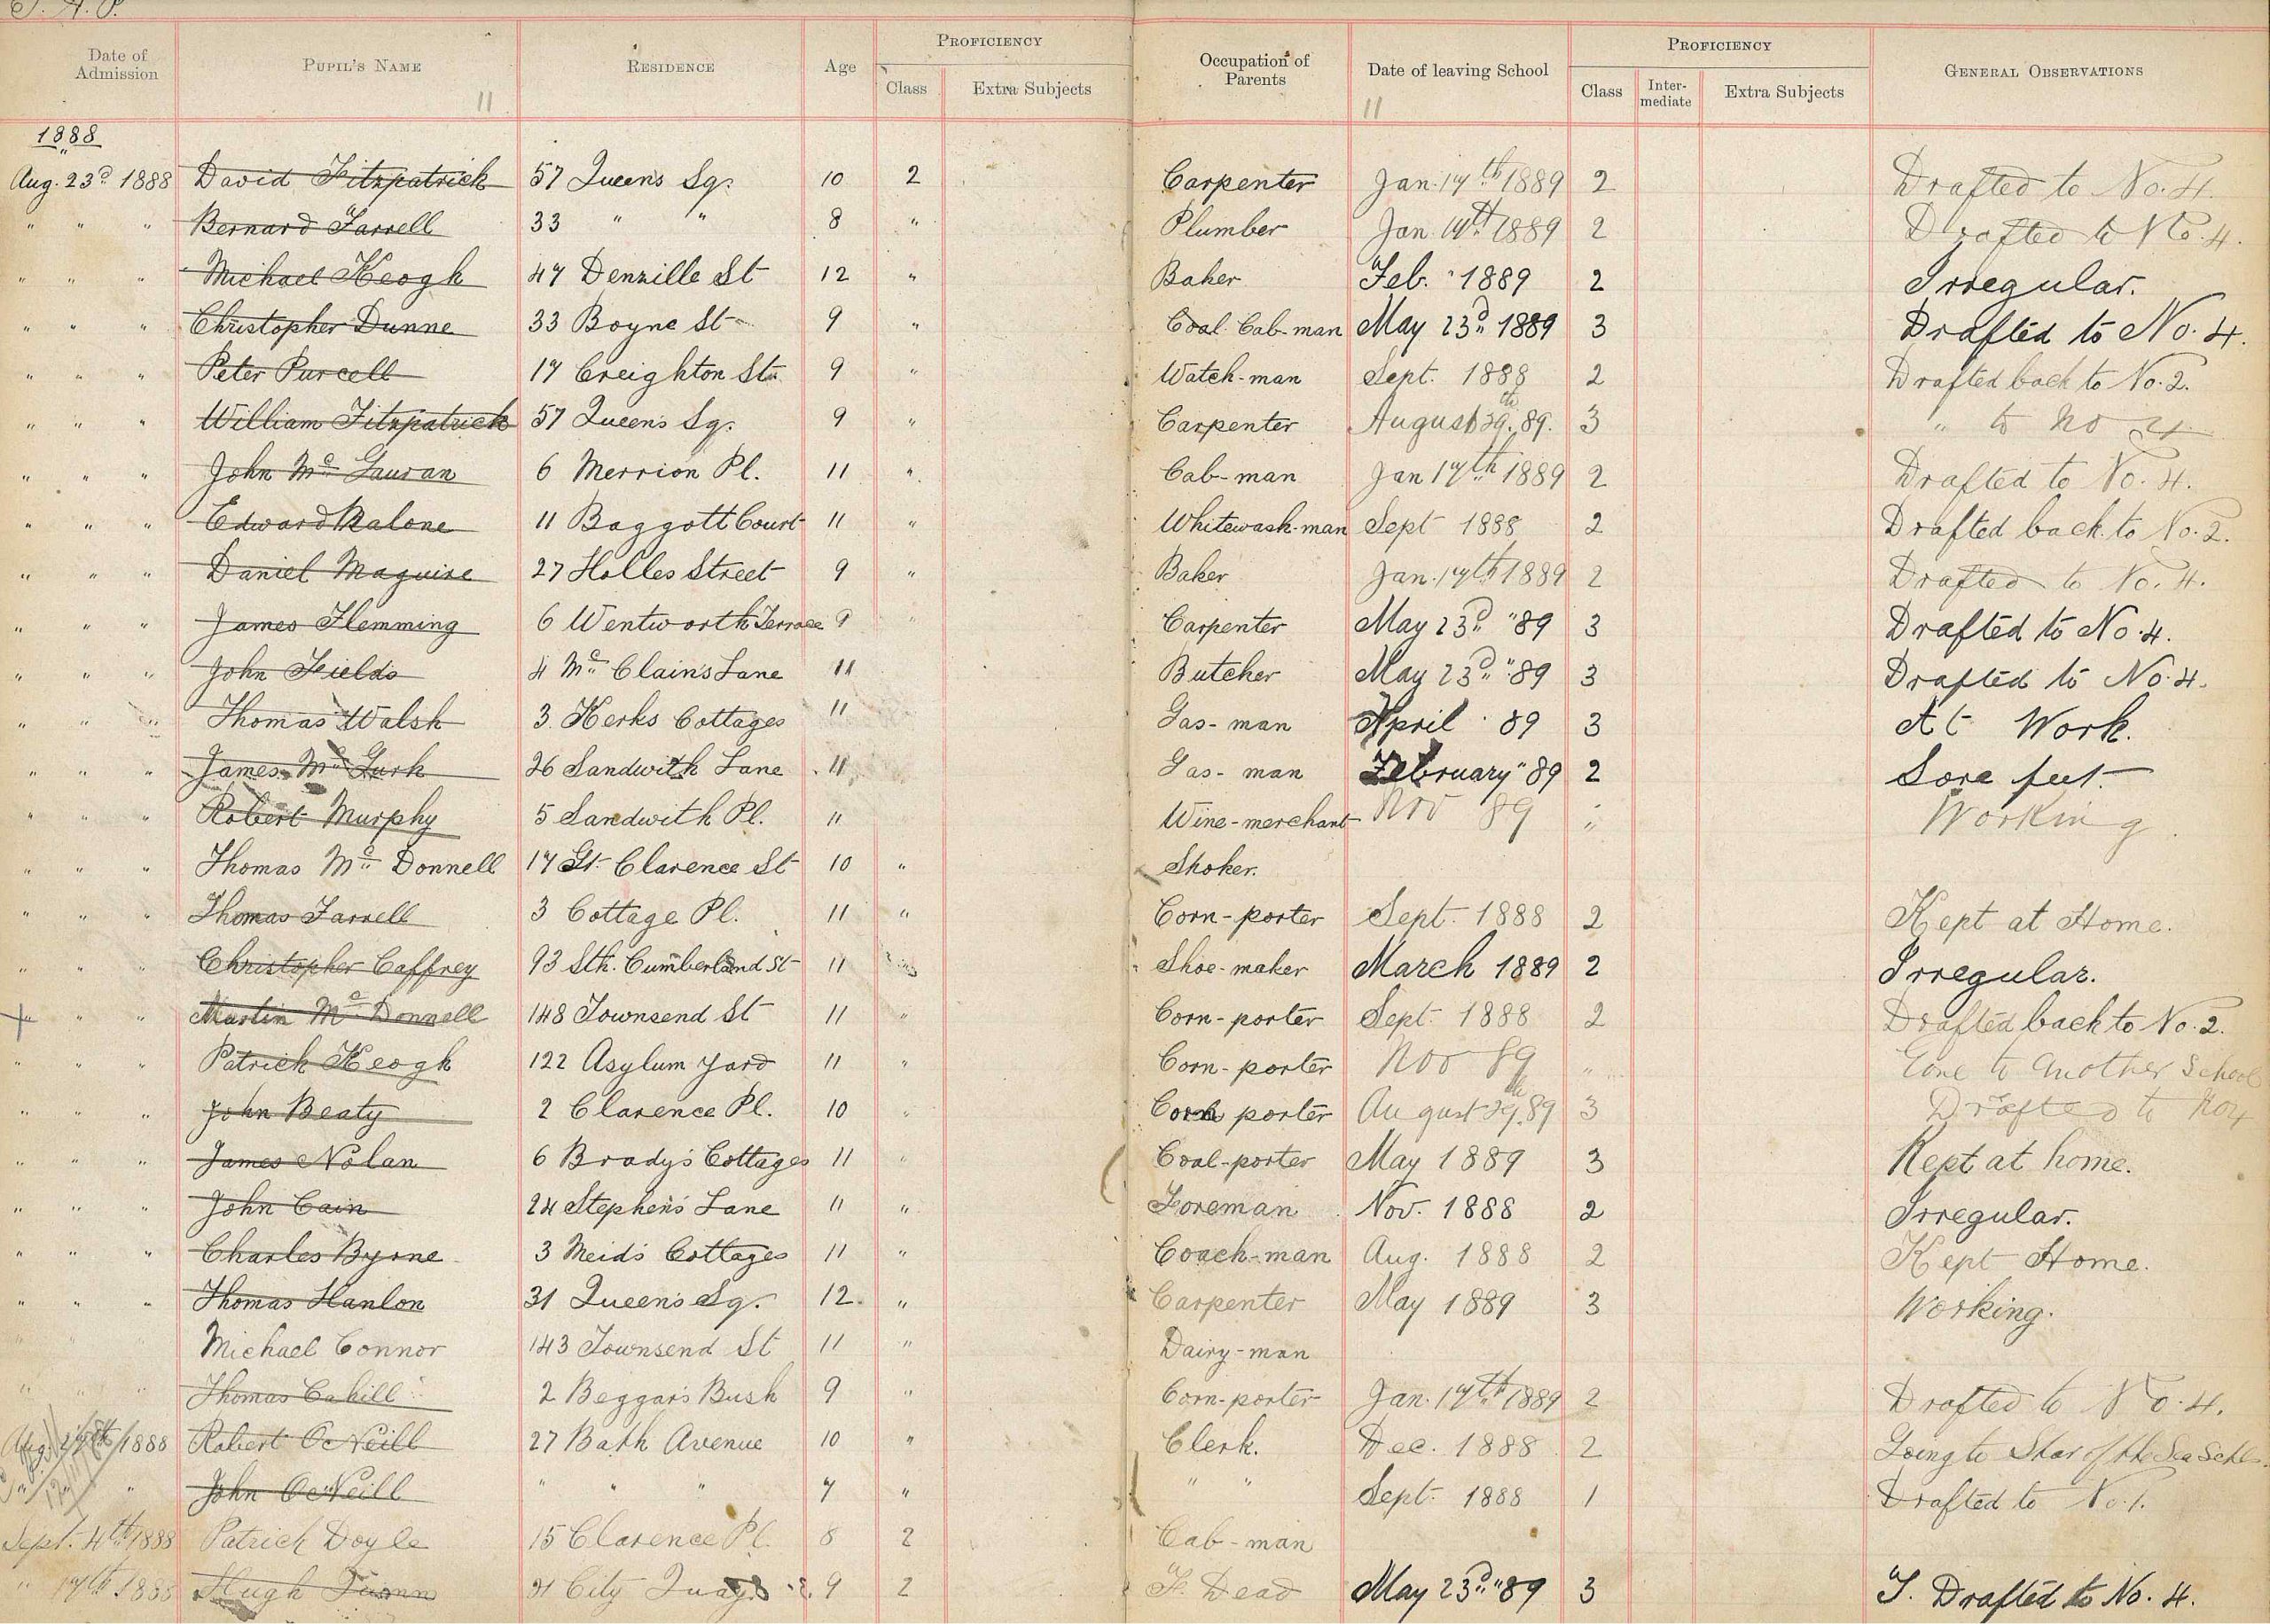 Date of Admission PUPIL'S NAME RESIDENCE Age PROFICIENCY Class Extra Subjects Occupation of Parents Date of leaving School PROFICIENCY Class Inter-mediate Extra Subjects GENERAL OBSERVATIONS
11 11
1888
Aug. 23d 1888 David Fitzpatrick 57 Queens Sq. 10 2 Carpenter Jan. 17th 1889 2 Drafted to No. 4.
" " " Bernard Farrell 33 " " 8 " Plumber Jan. 17th 1889 2 Drafted to No. 4.
" " " Michael Keogh 47 Denzille St 12 " Baker Feb. " 1889 2 Irregular.
" " " Christopher Dunne 33 Boyne St 9 " Coal Cab-man May 23d 1889 3 Drafted to No. 4.
" " " Peter Purcell 17 Creighton St. 9 " Watch-man Sept. 1888 2 Drafted back to No. 2.
" " " William Fitzpatrick 57 Queens Sq. 9 " Carpenter August 29th. 89. 3 " to No 4
" " " John Mc Gauran 6 Merrion Pl. 11 " Cab-man Jan 17th 1889 2 Drafted to No. 4.
" " " Edward Malone 11 Baggott Court 11 " Whitewash-man Sept 1888 2 Drafted back to No. 2.
" " " Daniel Maguire 27 Holles Street 9 " Baker Jan. 17th 1889 2 Drafted to No. 4.
" " " James Flemming 6 Wentworth Terrace 9 " Carpenter May 23d " 89 3 Drafted to No. 4.
" " " John Fields 4 Mc Clains Lane 11 Butcher May 23d " 89 3 Drafted to No. 4.
" " " Thomas Walsh 3 Kerks Cottages 11 Gas-man April 89 3 At Work.
" " " James Mc Gurk 26 Sandwith Lane 11 Gas-man February " 89 2 Sore feet.
" " " Robert Murphy 5 Sandwith Pl. 11 Wine-merchant Nov 89 " Working.
" " " Thomas Mc Donnell 17 Gt. Clarence St 10 " Stoker.
" " " Thomas Farrell 3 Cottage Pl. 11 " Corn-porter Sept. 1888 2 Kept at Home.
" " " Christopher Caffrey 93 Sth. Cumberland St 11 " Shoe-maker March 1889 2 Irregular.
" " " Martin Mc Donnell 148 Townsend St 11 " Corn-porter Sept. 1888 2 Drafted back to No. 2.
" " " Patrick Keogh 122 Asylum yard 11 " Corn-porter Nov 89 " Gone to another School
" " " John Beaty 2 Clarence Pl. 10 " Corn porter August 29th. 89 3 Drafted to No 4
" " " James Nolan 6 Brady's Cottages 11 " Coal-porter May 1889 3 Kept at home.
" " " John Cain 24 Stephen's Lane 11 " Foreman Nov. 1888 2 Irregular.
" " " Charles Byrne 3 Meid's Cottages 11 " Coach-man Aug. 1888 2 Kept Home.
" " " Thomas Hanlon 31 Queen's Sq. 12 " Carpenter May 1889 3 Working.
" " " Michael Connor 143 Townsend St 11 " Dairy-man
" " " Thomas Cahill 2 Beggar's Bush 9 " Corn-porter Jan. 17th 1889 2 Drafted to No. 4.
Aug. 1888 Robert O'Neill 27 Bath Avenue 10 " Clerk. Dec. 1888 2 Going to Star of the Sea Schl.
" " John O'Neill " " " 7 " " " Sept. 1888 1 Drafted to No. 1.
Sept. 4th 1888 Patrick Doyle 15 Clarence Pl. 8 2 Cab-man
" 17th 1888 Hugh 31 City Quay 9 2 F. Dead May 23d " 89 3 Drafted to No. 4.